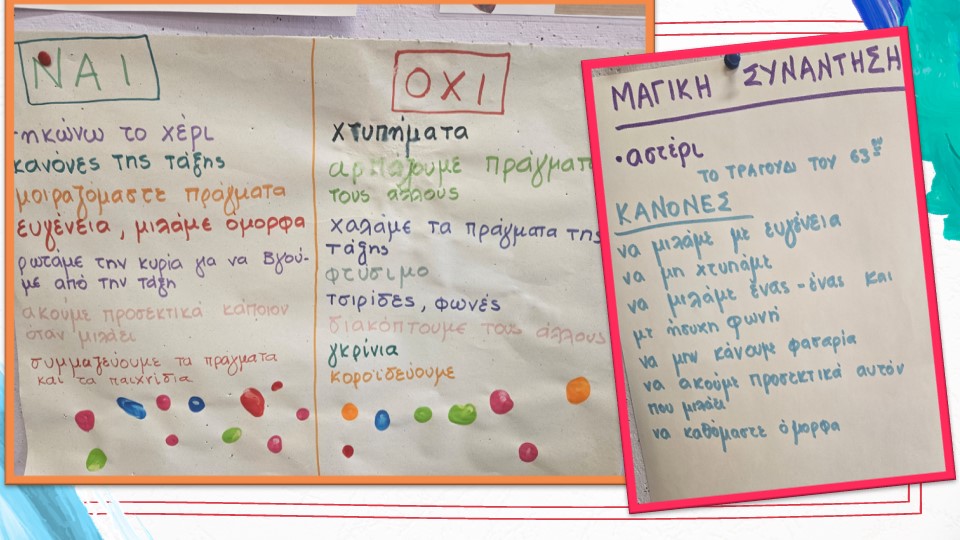 ΝΑΙ
σηκώνω το χέρι
κανόνες της τάξης
μοιραζόμαστε πράγματα
ευγένεια, μιλάμε όμορφα
ρωτάμε την κυρία για να βγού-
με από την τάξη
ακούμε προσεκτικά κάποιον
όταν μιλάει
συμμαζεύουμε τα πράγματα
και τα παιχνίδια
ΟΧΙ
χτυπήματα
αρπάζουμε πράγματ
τους άλλους
χαλάμε τα πράγματα της
τάξης
φτύσιμο
τσιρίδες, φωνές
διακόπτουμε τους άλλους
γκρίνια
κοροϊδεύουμε
ΜΑΓΙΚΗ ΣΥΝΑΝΤΗΣΗ
•αστέρι
ΤΟ ΤΡΑΓΟΥΔΙ ΤΟΥ 63
ΚΑΝΟΝΕΣ
να μιλάμε με ευγένεια
να μη χτυπάμε
να μιλάμε ένας-ένας και
με ήσυχη φωνή
να μην κάνουμε φασαρία
να ακούμε προσεκτικά αυτόν
που μιλάει
να καθόμαστε όμορφα